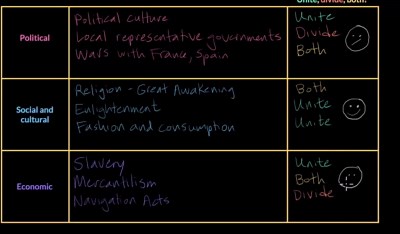 Unite, divide, both?
Political
Political culture
Local representative governments
Wars with France, Spain
Unite
Divide
Both
Social and
cultural
Religion - Great Awakening
Enlightenment
Fashion and consumption
Both
Unite
Unite
Economic
Slavery
Mercantilism
Navigation Acts
Unite
Both
Divide